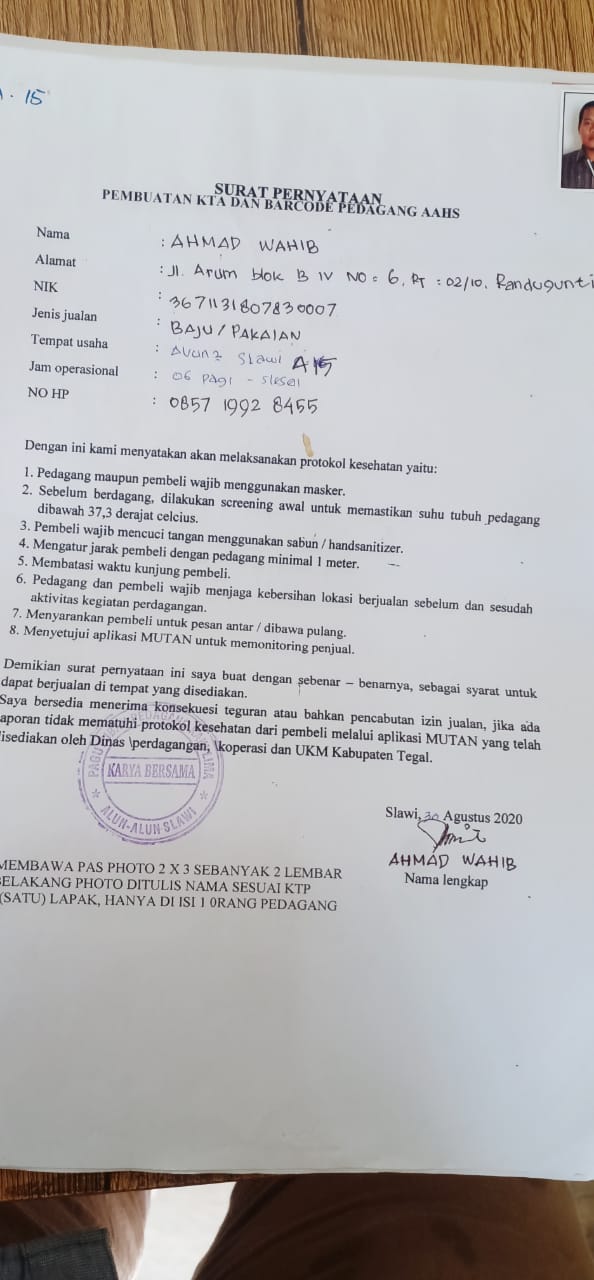 . 15
SURAT PERNYATAAN
PEMBUATAN KTA DAN BARCODE PEDAGANG AAHS
Nama : AHMAD WAHIB
Alamat : Jl. Arum blok B IV NO = 6, RT : 02/10. Randugunti
NIK : 3671131807830007
Jenis jualan : BAJU / PAKAIAN
Tempat usaha : Alun2 Slawi A15
Jam operasional : 06 pagi - slesai
NO HP : 0857 1992 8455
Dengan ini kami menyatakan akan melaksanakan protokol kesehatan yaitu:
1. Pedagang maupun pembeli wajib menggunakan masker.
2. Sebelum berdagang, dilakukan screening awal untuk memastikan suhu tubuh pedagang
dibawah 37,3 derajat celcius.
3. Pembeli wajib mencuci tangan menggunakan sabun / handsanitizer.
4. Mengatur jarak pembeli dengan pedagang minimal 1 meter.
5. Membatasi waktu kunjung pembeli.
6. Pedagang dan pembeli wajib menjaga kebersihan lokasi berjualan sebelum dan sesudah
aktivitas kegiatan perdagangan.
7. Menyarankan pembeli untuk pesan antar / dibawa pulang.
8. Menyetujui aplikasi MUTAN untuk memonitoring penjual.
Demikian surat pernyataan ini saya buat dengan sebenar – benarnya, sebagai syarat untuk
dapat berjualan di tempat yang disediakan.
Saya bersedia menerima konsekuesi teguran atau bahkan pencabutan izin jualan, jika ada
aporan tidak mematuhi protokol kesehatan dari pembeli melalui aplikasi MUTAN yang telah
disediakan oleh Dinas \perdagangan, \koperasi dan UKM Kabupaten Tegal.
KARYA BERSAMA
* ALUN-ALUN SLAWI *
Slawi, 30 Agustus 2020
AHMAD WAHIB
Nama lengkap
MEMBAWA PAS PHOTO 2 X 3 SEBANYAK 2 LEMBAR
BELAKANG PHOTO DITULIS NAMA SESUAI KTP
(SATU) LAPAK, HANYA DI ISI 1 0RANG PEDAGANG